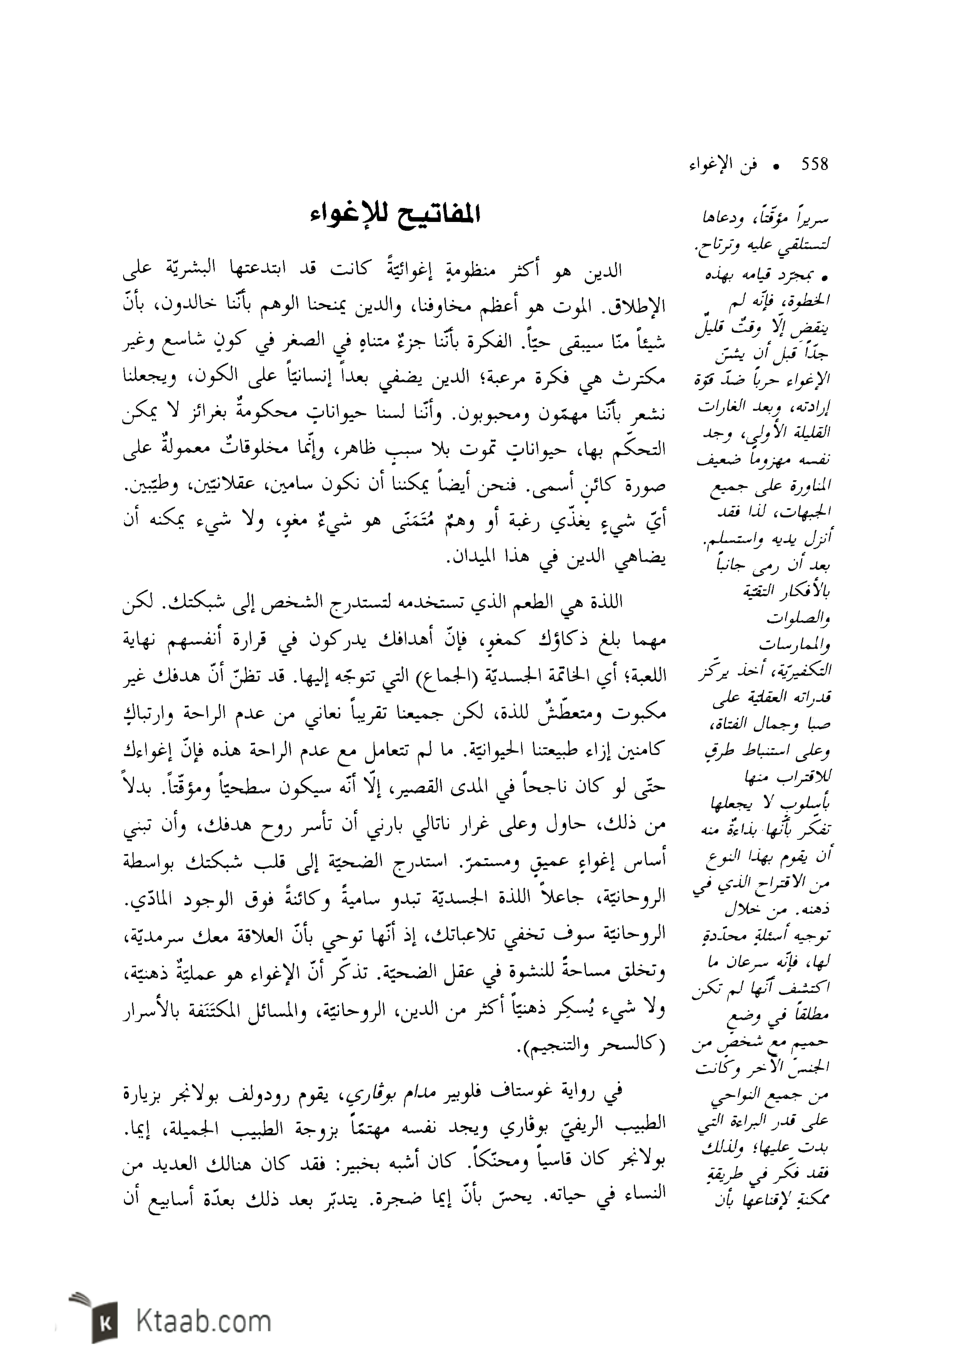 558 • فن الإغواء
المفاتيح للإغواء
الدين هو أكثر منظومةٍ إغوائيّةً كانت قد ابتدعتها البشريّة على
الإطلاق. الموت هو أعظم مخاوفنا، والدين يمنحنا الوهم بأنّنا خالدون، بأنّ
شيئاً منّا سيبقى حيّاً. الفكرة بأنّنا جزءٌ متناهٍ في الصغر في كونٍ شاسع وغير
مكترث هي فكرة مرعبة؛ الدين يضفي بعداً إنسانيّاً على الكون، ويجعلنا
نشعر بأنّنا مهمّون ومحبوبون. وأنّنا لسنا حيواناتٍ محكومةٌ بغرائز لا يمكن
التحكّم بها، حيواناتٍ تموت بلا سببٍ ظاهر، وإنّما مخلوقاتٌ معمولةٌ على
صورة كائنٍ أسمى. فنحن أيضاً يمكننا أن نكون سامين، عقلانيّين، وطيّبين.
أيّ شيءٍ يغذّي رغبة أو وهمٌ مُتَمَنّى هو شيءٌ مغوٍ، ولا شيء يمكنه أن
يضاهي الدين في هذا الميدان.
اللذة هي الطعم الذي تستخدمه لتستدرج الشخص إلى شبكتك. لكن
مهما بلغ ذكاؤك كمغوٍ، فإنّ أهدافك يدركون في قرارة أنفسهم نهاية
اللعبة؛ أي الخاتمة الجسديّة (الجماع) التي تتوجّه إليها. قد تظنّ أنّ هدفك غير
مكبوت ومتعطّشٌ للذة، لكن جميعنا تقريباً نعاني من عدم الراحة وارتباكٍ
كامنين إزاء طبيعتنا الحيوانيّة. ما لم تتعامل مع عدم الراحة هذه فإنّ إغواءك
حتّى لو كان ناجحاً في المدى القصير، إلّا أنّه سيكون سطحيّاً ومؤقّتاً. بدلاً
من ذلك، حاول وعلى غرار ناتالي بارني أن تأسر روح هدفك، وأن تبني
أساس إغواءٍ عميقٍ ومستمرّ. استدرج الضحيّة إلى قلب شبكتك بواسطة
الروحانيّة، جاعلاً اللذة الجسديّة تبدو ساميةً وكائنةً فوق الوجود المادّي.
الروحانيّة سوف تخفي تلاعباتك، إذ أنّها توحي بأنّ العلاقة معك سرمديّة،
وتخلق مساحةً للنشوة في عقل الضحيّة. تذكّر أنّ الإغواء هو عمليّةٌ ذهنيّة،
ولا شيء يُسكِر ذهنيّاً أكثر من الدين، الروحانيّة، والمسائل المكتَنَفة بالأسرار
(كالسحر والتنجيم).
في رواية غوستاف فلوبير مدام بوڤاري، يقوم رودولف بولانجر بزيارة
الطبيب الريفيّ بوڤاري ويجد نفسه مهتمّاً بزوجة الطبيب الجميلة، إيما.
بولانجر كان قاسياً ومحنّكاً. كان أشبه بخبير: فقد كان هنالك العديد من
النساء في حياته. يحسّ بأنّ إيما ضجرة. يتدبّر بعد ذلك بعدّة أسابيع أن
سريراً مؤقّتاً، ودعاها
لتستلقي عليه وترتاح.
• بمجرّد قيامه بهذه
الخطوة، فإنّه لم
ينقضِ إلّا وقتٌ قليلٌ
جدّاً قبل أن يشنّ
الإغواء حرباً ضدّ قوّة
إرادته، وبعد الغارات
القليلة الأولى، وجد
نفسه مهزوماً ضعيف
المناورة على جميع
الجبهات، لذا فقد
أنزل يديه واستسلم.
بعد أن رمى جانباً
بالأفكار التقيّة
والصلوات
والممارسات
التكفيريّة، أخذ يركّز
قدراته العقليّة على
صبا وجمال الفتاة،
وعلى استنباط طرقٍ
للاقتراب منها
بأسلوبٍ لا يجعلها
تفكّر بأنّها بذاءةٌ منه
أن يقوم بهذا النوع
من الاقتراح الذي في
ذهنه. من خلال
توجيه أسئلةٍ محدّدةٍ
لها، فإنّه سرعان ما
اكتشف أنّها لم تكن
مطلقاً في وضعٍ
حميمٍ مع شخصٍ من
الجنس الآخر وكانت
من جميع النواحي
على قدر البراءة التي
بدت عليها؛ ولذلك
فقد فكّر في طريقةٍ
ممكنةٍ لإقناعها بأن
Ktaab.com